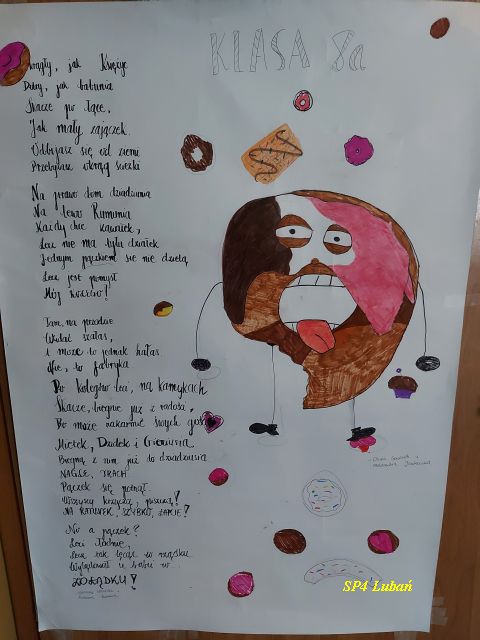 KLASA 8a
Okrągły, jak Księżyc
Dobry, jak babunia
Skacze po łące,
Jak mały zajączek.
Odbijasz się od ziemi
Przebijasz okrągą ścieżki
Na prawo dom dziadziunia
Na lewo Rumunia
Każdy chce kawałek,
Lecz nie ma tylu
Jednym pączkiem się nie dzielą
Lecz jest pomysł
Mój kolego!
Tam, na przodzie
Widać szałas,
i może to jednak hałas
Nie, to fabryka
Do kolegów leci, na kamykach
Skacze, biegnie już z radości,
Bo może nakarmić swych gości
Mietek, Dziadek i Gieniusia
Biegną z nim już do dziadziusia
NAGLE, TRACH!
Pączek się potknął
Wszyscy krzyczą, piszczą!
NA RATUNEK, SZYBKO, ŁAPIE?
No a pączek?
Leci
Lecz tak lecąc w
Wylądował u babci w
ŻOŁĄDKU!
SP4 Lubań